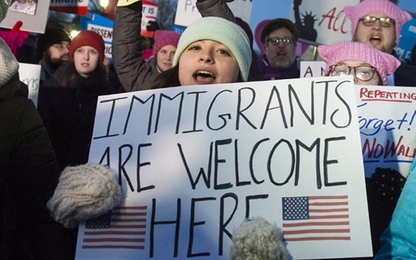 IMMIGRANTS
ARE WELCOME
HERE
REPEATING
orget!
NoWALL